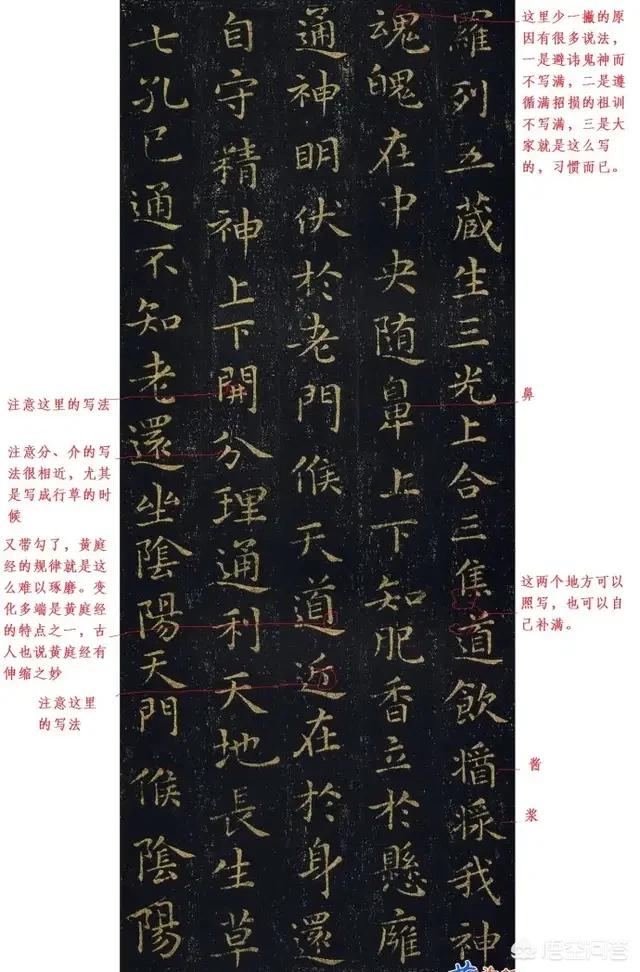 羅列五蔵生三光上合三焦道飲醬漿我神
魂魄在中央随鼻上下知肥香立於懸廱
通神明伏於老門候天道近在於身還
自守精神上下開分理通利天地長生草
七孔已通不知老還坐陰陽天門候陰陽
这里少一撇的原
因有很多说法，
一是避讳鬼神而
不写满，二是遵
循满招损的祖训
不写满，三是大
家就是这么写
的，习惯而已。
鼻
这两个地方可以
照写，也可以自
己补满。
酱
浆
注意这里的写法
注意分、介的写
法很相近，尤其
是写成行草的时
候
又带勾了，黄庭
经的规律就是这
么难以琢磨。变
化多端是黄庭经
的特点之一，古
人也说黄庭经有
伸缩之妙
注意这里
的写法
悟空问答